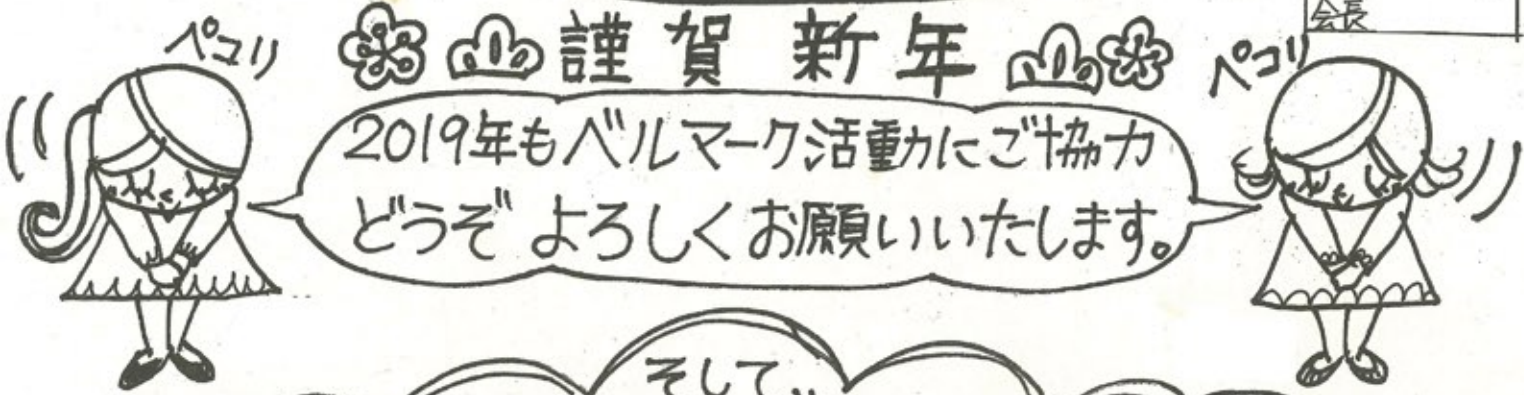 会長
謹賀新年
ペコリ
ペコリ
2019年もベルマーク活動にご協力
どうぞよろしくお願いいたします。
そして、、